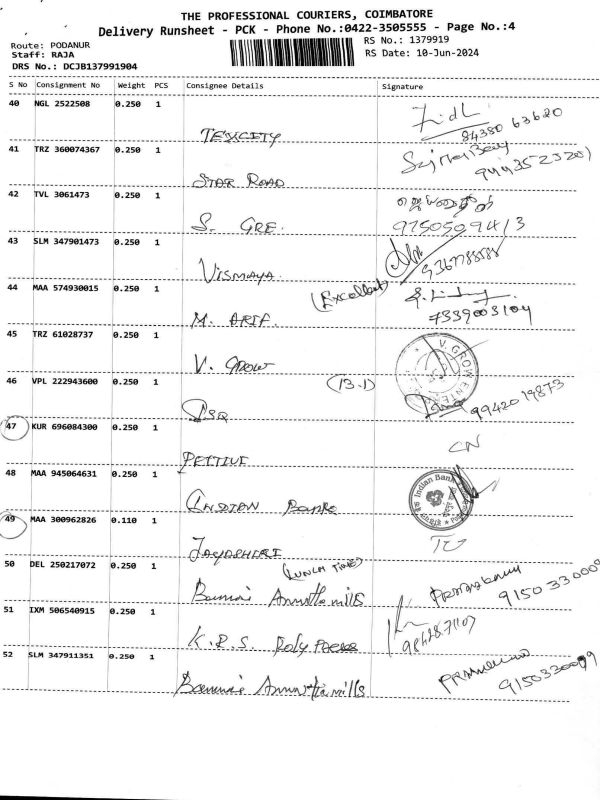 THE PROFESSIONAL COURIERS, COIMBATORE
Delivery Runsheet - PCK - Phone No.:0422-3505555 - Page No.:4
Route: PODANUR
Staff: RAJA
DRS No.: DCJB137991904
RS No.: 1379919
RS Date: 10-Jun-2024
S No Consignment No Weight PCS Consignee Details Signature
40 NGL 2522508 0.250 1
TEXCITY 84380 63620
41 TRZ 360074367 0.250 1
STAR ROAD
42 TVL 3061473 0.250 1
S. GRE. 9750509413
43 SLM 347901473 0.250 1
VISMAYA.
44 MAA 574930015 0.250 1
(Excellent)
M. ARIF. 7339003104
45 TRZ 61028737 0.250 1
V. GROW V. GROW
46 VPL 222943600 0.250 1
(13.1)
PSR 9942019873
47 KUR 696084300 0.250 1
CN
48 MAA 945064631 0.250 1
INDIAN Bank Indian Bank
49 MAA 300962826 0.110 1
JAYASHERI
50 DEL 250217072 0.250 1
(LUNCH TIME)
Bannari Annatha mills 9150330009
51 IXM 506540915 0.250 1
K.R.S. Poly
52 SLM 347911351 0.250 1
Bannari Annatha mills 9150330009